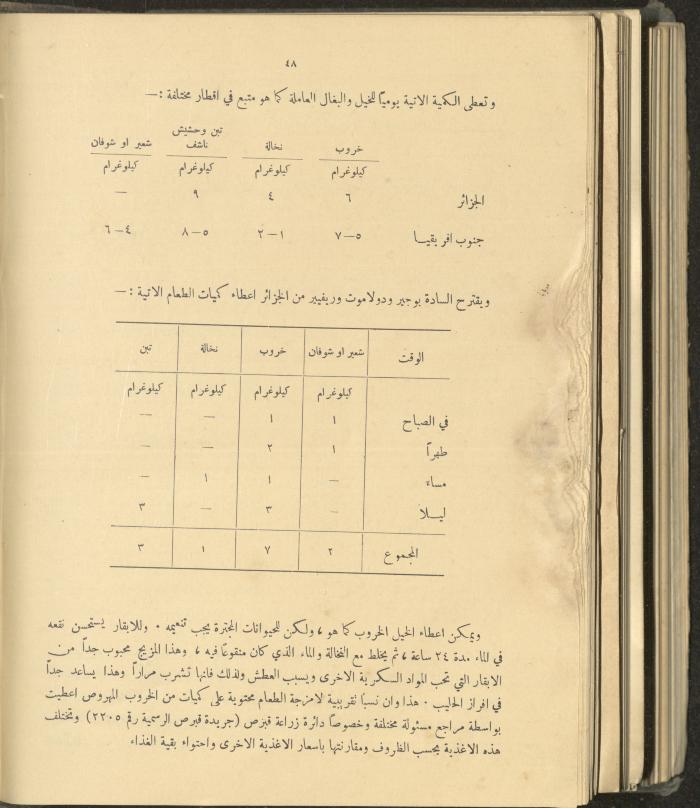 ٤٨
وتعطى الكمية الاتية يومياً للخيل والبغال العاملة كما هو متبع في اقطار مختلفة :—
خروب نخالة تبن وحشيش ناشف شعير او شوفان
كيلوغرام كيلوغرام كيلوغرام كيلوغرام
الجزائر ٦ ٤ ٩ —
جنوب افريقيا ٥—٧ ١—٢ ٥—٨ ٤—٦
ويقترح السادة بوجير ودولاموت وريفيير من الجزائر اعطاء كميات الطعام الاتية :—
الوقت شعير او شوفان خروب نخالة تبن
كيلوغرام كيلوغرام كيلوغرام كيلوغرام
في الصباح ١ ١ — —
ظهراً ١ ٢ — —
مساءً — ١ ١ —
ليلاً — ٣ — ٣
المجموع ٢ ٧ ١ ٣
ويمكن اعطاء الخيل الخروب كما هو ، ولكن للحيوانات المجترة يجب تنعيمه . وللابقار يستحسن نقعه
في الماء مدة ٢٤ ساعة ، ثم يخلط مع النخالة والماء الذي كان منقوعاً فيه ، وهذا المزيج محبوب جداً من
الابقار التي تحب المواد السكرية الاخرى ويسبب العطش ولذلك فانها تشرب مراراً وهذا يساعد جداً
في افراز الحليب . هذا وان نسباً تقريبية لامزجة الطعام محتوية على كميات من الخروب المهروص اعطيت
بواسطة مراجع مسئولة مختلفة وخصوصاً دائرة زراعة قبرص (جريدة قبرص الرسمية رقم ٢٢٠٥) وتختلف
هذه الاغذية بحسب الظروف ومقارنتها باسعار الاغذية الاخرى واحتواء بقية الغذاء